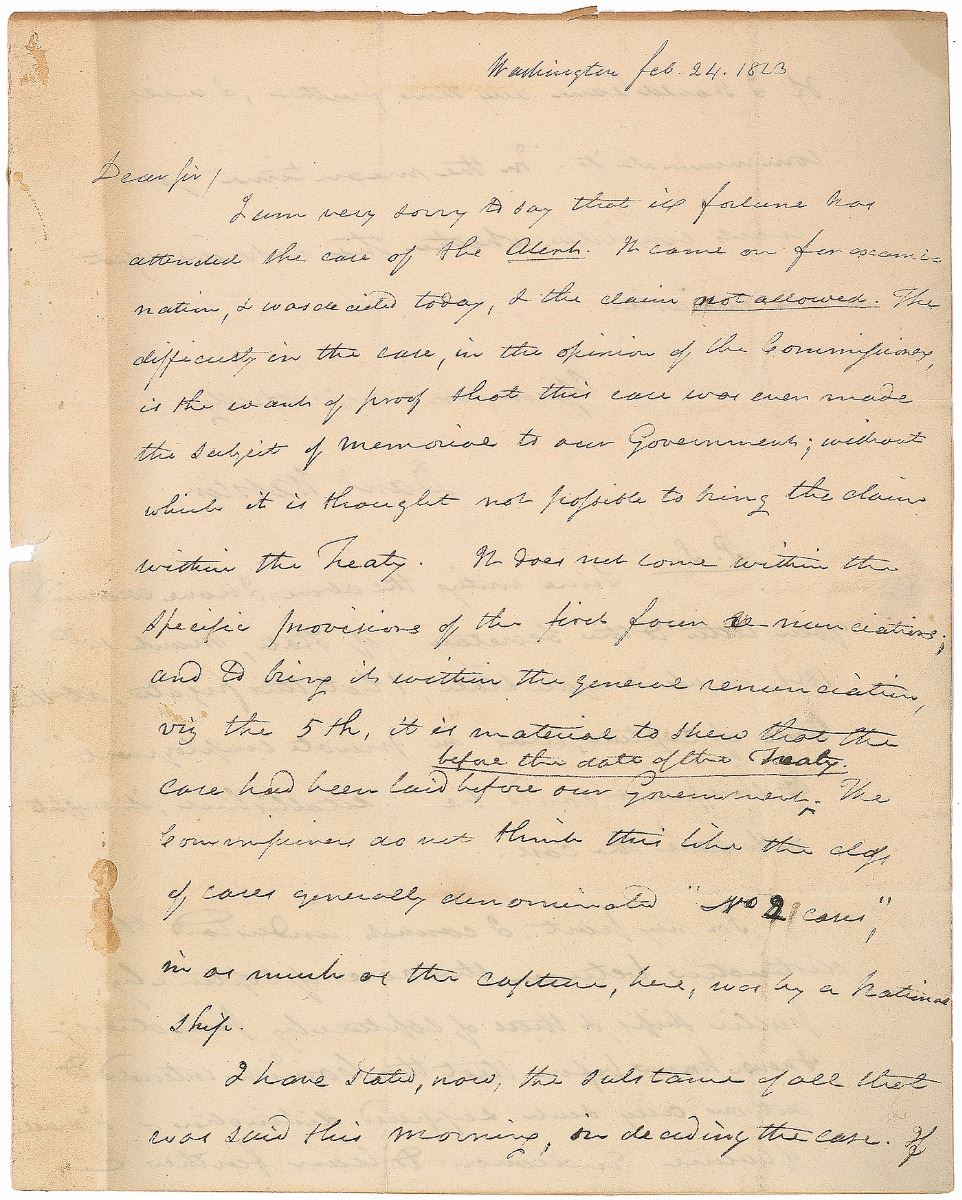 Washington feb. 24. 1823
Dear Sir,
I am very sorry to say that ill fortune has
attended the case of the Alert. It came on for exami=
nation, & was decided today, & the claim not allowed. The
difficulty in the case, in the opinion of the Commissioners,
is the want of proof that this case was ever made
the subject of memorial to our Government; without
which it is thought not possible to bring the claim
within the Treaty. It does not come within the
specific provisions of the first four renunciations;
and to bring it within the general renunciation,
viz the 5th, it is material to shew that the
before the date of the Treaty.
case had been laid before our Government. ^ The
Commissioners do not think this like the class
of cases generally denominated "No 2 cases",
in as much as the capture, here, was by a National
ship.
I have stated, now, the substance of all that
was said this morning, on deciding the case. If